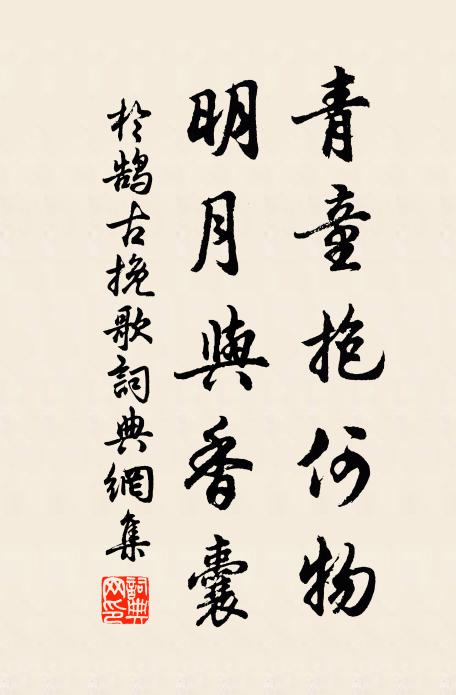 青童抱何物
明月與香囊
於鹄古挽歌詞典網集
詞典網印